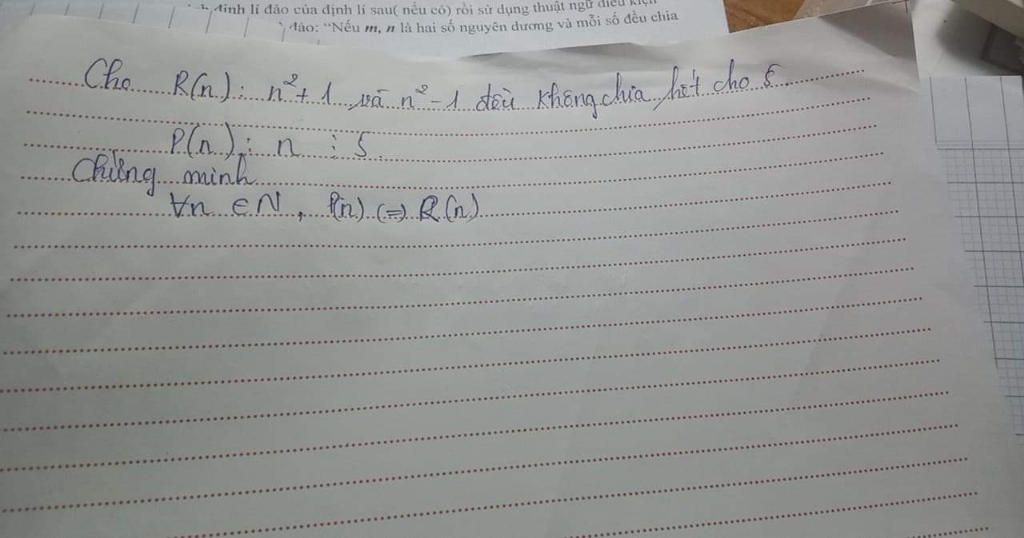 định lí đảo của định lí sau( nếu có) rồi sử dụng thuật ngữ điều kiện
đảo: “Nếu m, n là hai số nguyên dương và mỗi số đều chia
Cho R(n): n²+1 và n²-1 đều không chia hết cho 5
P(n): n ⋮ 5
Chứng minh
∀n ∈ N, P(n) (=) R(n)